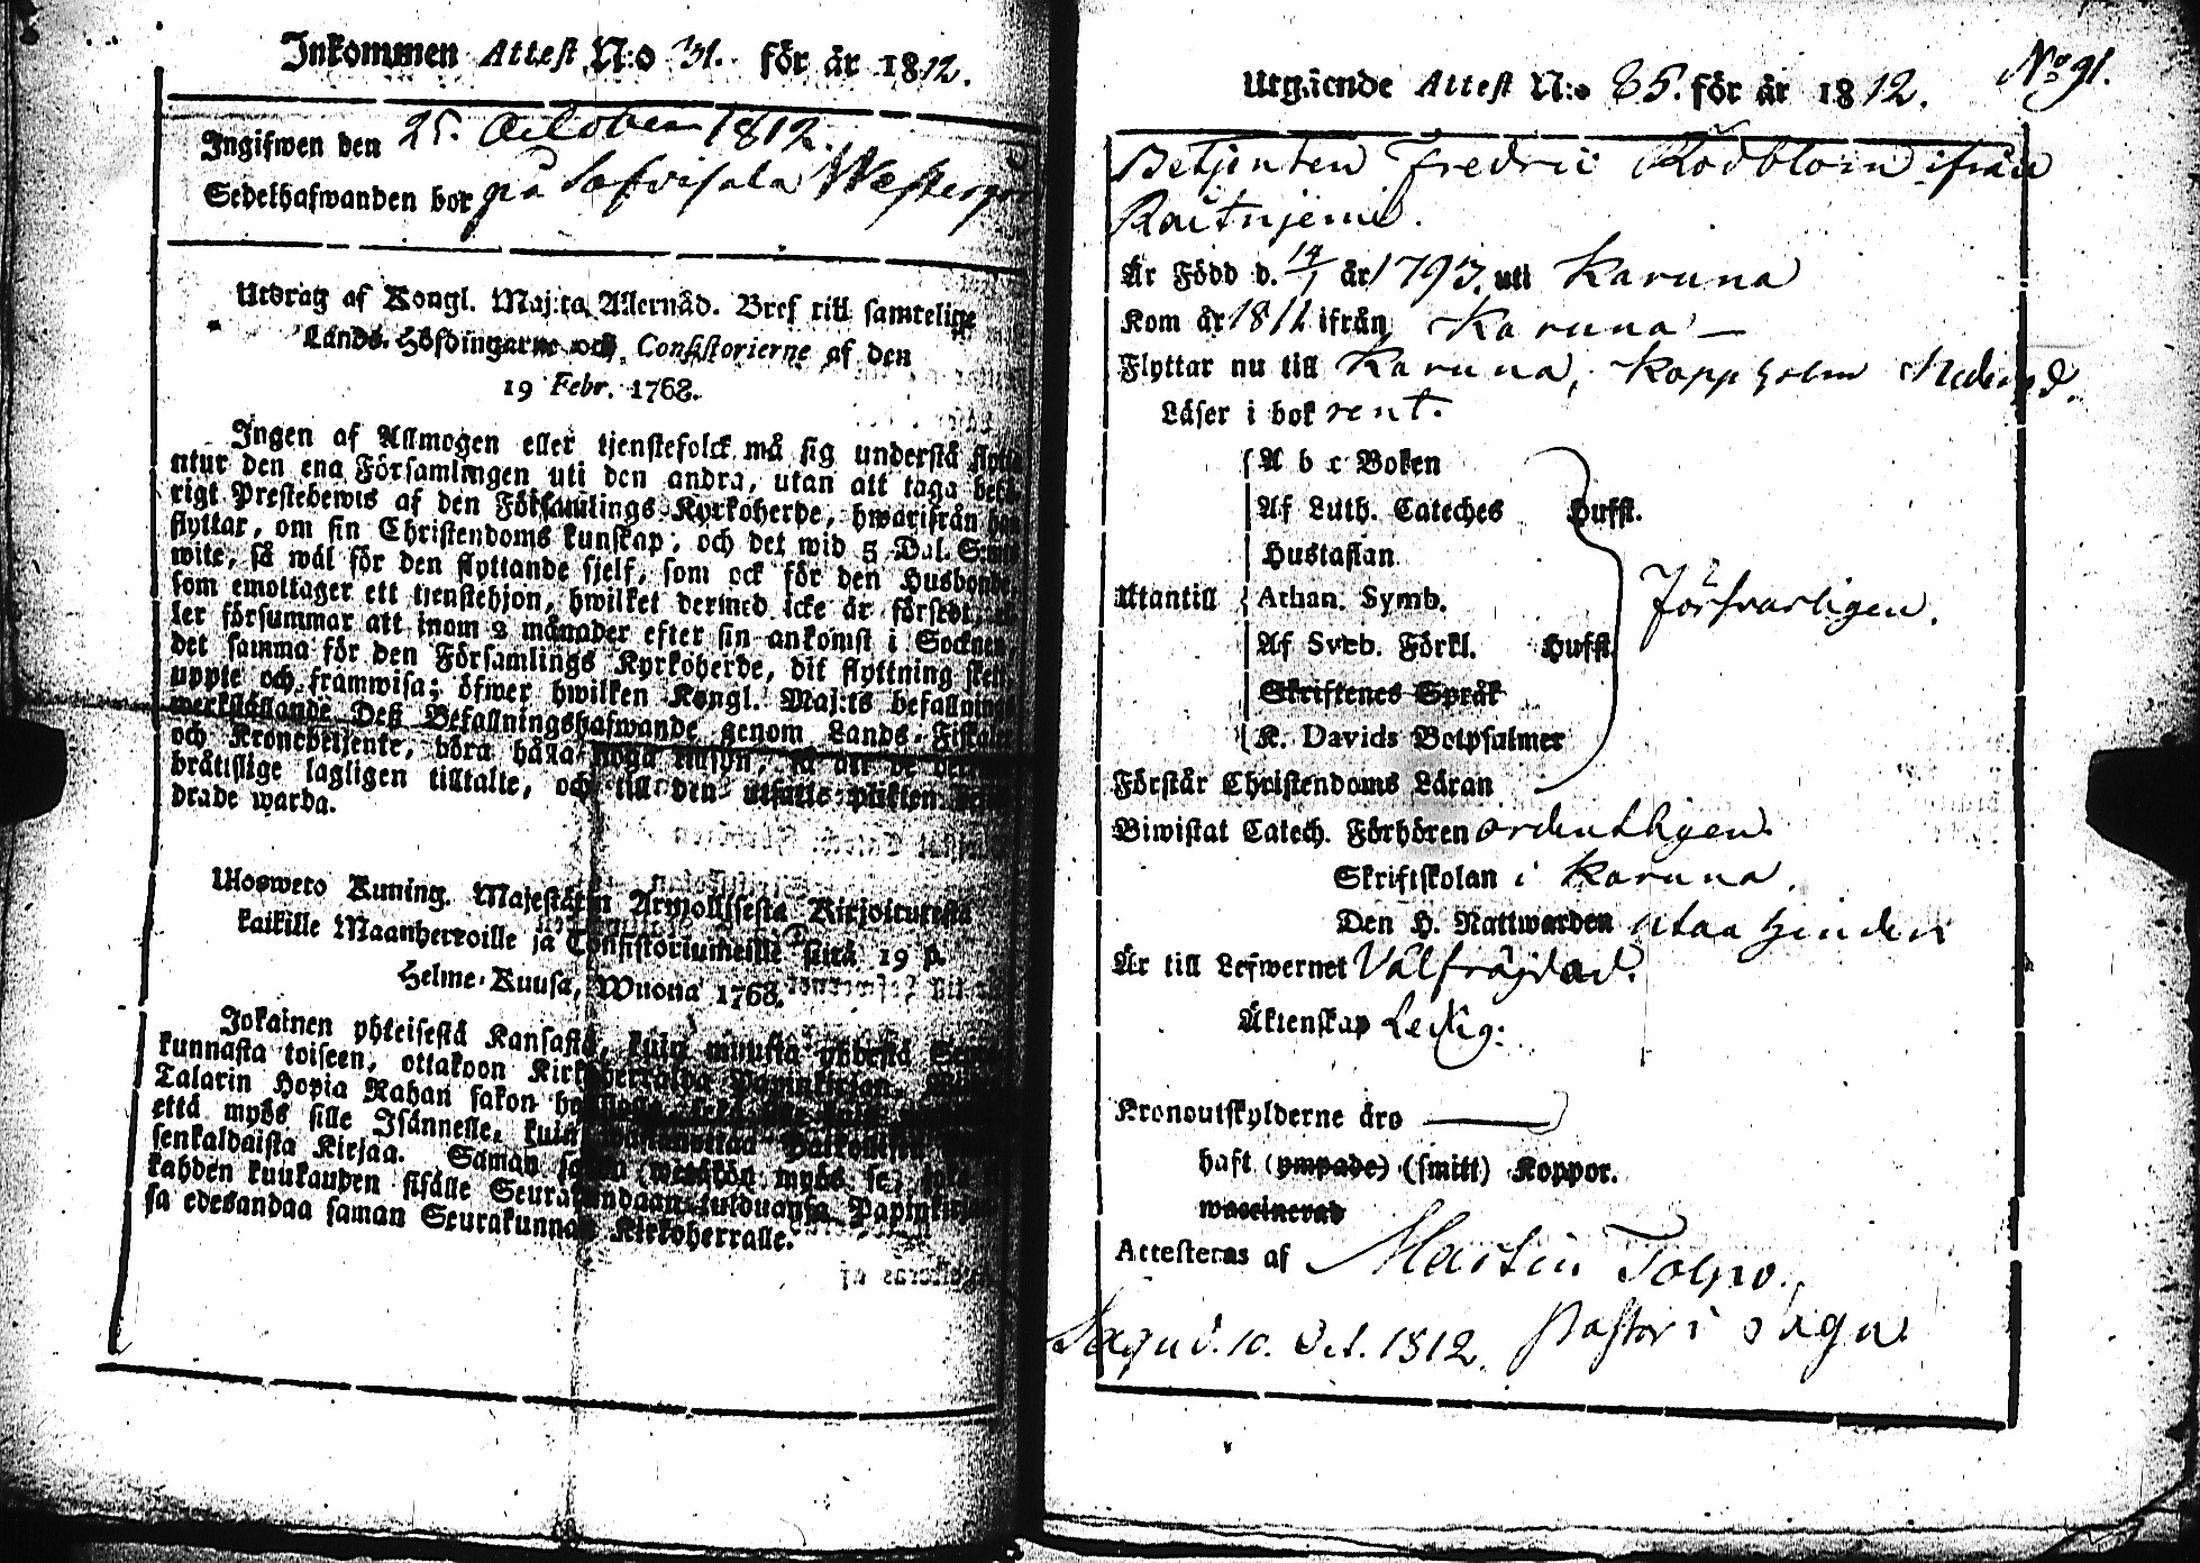 Inkommen Attest N:o 31. för är 1812.
Ingifwen den 25. October 1812.
Sedelhafwanden bor på
Utdrag af Kongl. Maj:ts Allernåd. Bref till samtelige
Lands-Höfdingarne och Consistorierne af den
19 Febr. 1768.
Ingen af Allmogen eller tjenstefolck må sig understå flytta
utur den ena Församlingen uti den andra, utan att taga behö-
rigt Prestebewis af den Församlings Kyrkoherde, hwarifrån han
flyttar, om sin Christendoms kunskap, och det wid 5 Dal. S:mt
wite, så wäl för den flyttande sjelf, som ock för den Husbonde,
som emottager ett tjenstehjon, hwilket dermed icke är försedt,
ler försummar att inom 2 månader efter sin ankomst i Socknen,
det samma för den Församlings Kyrkoherde, dit flyttning skett,
uppte och framwisa; öfwer hwilken Kongl. Maj:ts befallnings
werkställande Deß Befallningshafwande genom Lands-Fiskaler
och Kronobetjente, böra hålla noga
bråtislige lagligen tilltalte, och till den utsatte plikten
drade warda.
Ulosweto Kuning. Majestätin Armollisesta Kirjoituresta
kaikille Maanherroille ja Consistoriumeille siitä 19 p.
Helme-Kuusa, Wuona 1768.
Jokainen yhteisestä Kansasta, kuin muusta
kunnasta toiseen, ottakoon
Talarin Hopia Rahan sakon
että myös sille Isännelle, kuin
senkaldaista Kirjaa. Saman myös se,
kahden kuukauden sisälle Seurakundaan tulduansa
sa edesandaa saman Seurakunnan Kirkoherralle.
Utgäende Attest N:o 85. för är 1812.
No 91.
Betjenten Fredric Rödblom ifrån
Raitnjemi.
Är Född d. 14/1 är 1793. uti Karuna
Kom är 1811 ifrån Karuna —
Flyttar nu till Karuna, Koppholm
Läser i bok rent.
A b c Boken
Af Luth. Cateches Hufst.
Hustaflan
Utantill Athan. Symb.
Försvarligen.
Af Sveb. Förkl. Hufst.
Skriftenes Språk
K. Davids Botpsalmer
Förstår Christendoms Läran
Biwistat Catech. Förhören ordentligen
Skriftskolan i Karuna.
Den H. Nattwarden utan hinder
Är till Lefwernet Välfräjdad.
Äktenskap Ledig.
Kronoutskylderne äro —
haft (ympade) (smitt) Koppor.
waccinerad
Attesteras af Martin Tolpo.
Sagu d. 10. Oct. 1812. Pastor i Sagu